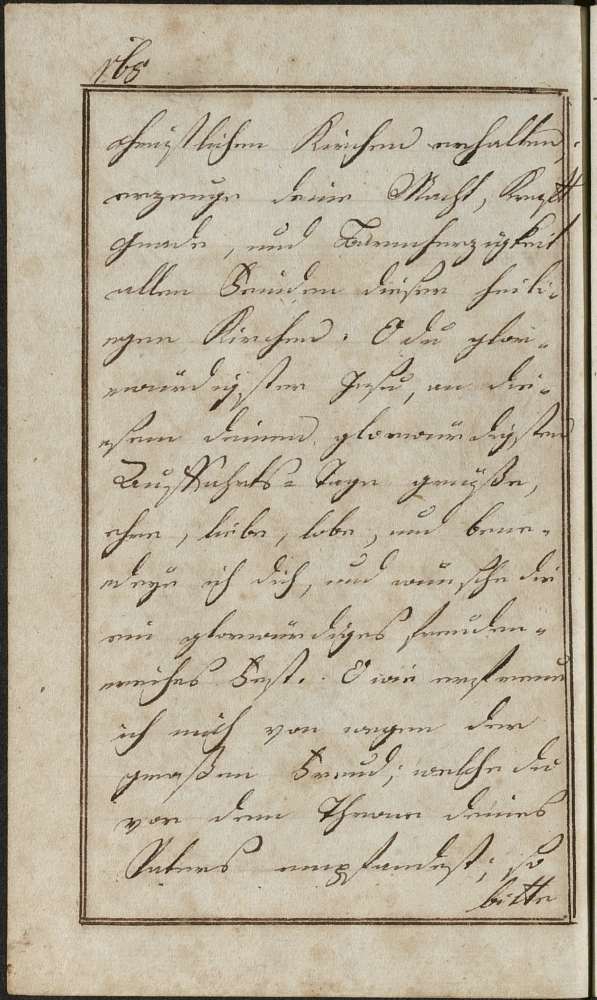 168
christlichen Kirchen erhalten,
erzeuge deine Macht, Krafft
Gnade, und Barmherzigkeit
allen Feinden dieser heili-
egen Kirchen. O du glor-
ewürdigster Jesu, an die-
esem deinem glorwürdigsten
Auffahrts-Tage grüsse,
ehre, liebe, lobe, und bene-
edeye ich dich, und wünsche dir
ein glorwürdiges freuden-
ereiches Fest. O wie erfreue
ich mich von wegen der
grossen Freud; welche du
vor dem Throne deines
Vaters empfandest; so
bitte